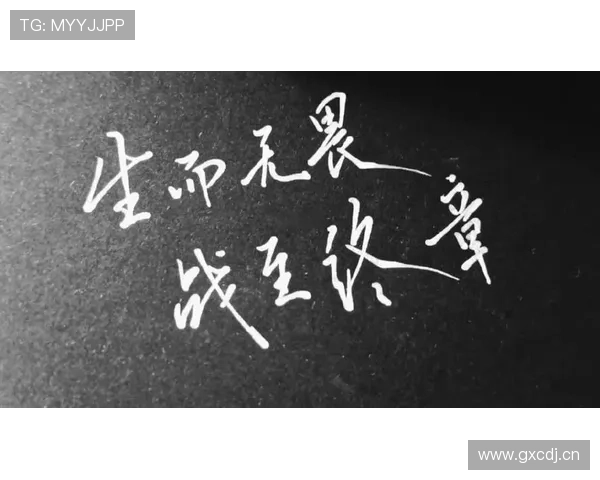 TG: MYYJJPP
生而无畏
战至终章
www.gxcdj.cn